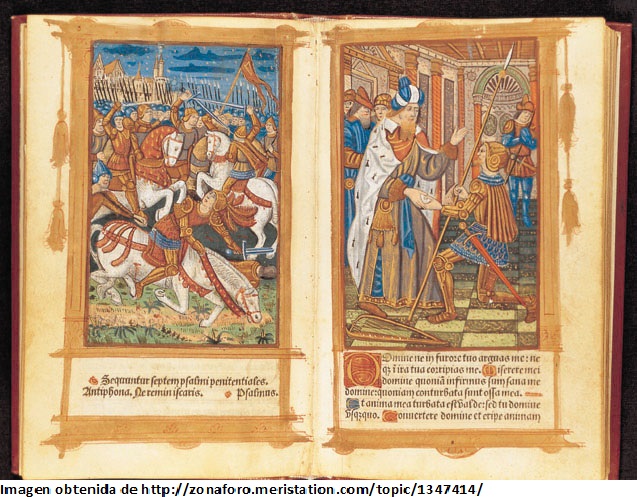 Sequuntur septem psalmi penitentiales.
Antiphona. Ne reminiscaris. Psalmus.
Domine ne in furore tuo arguas me: ne
q3 in ira tua corripias me. Miserere mei
domine quoniã infirmus sum sana me
domine: quoniam conturbata sunt ossa mea.
Et anima mea turbata est valde: sed tu domine
vsq3quo. Convertere domine et eripe animam
Imagen obtenida de http://zonaforo.meristation.com/topic/1347414/